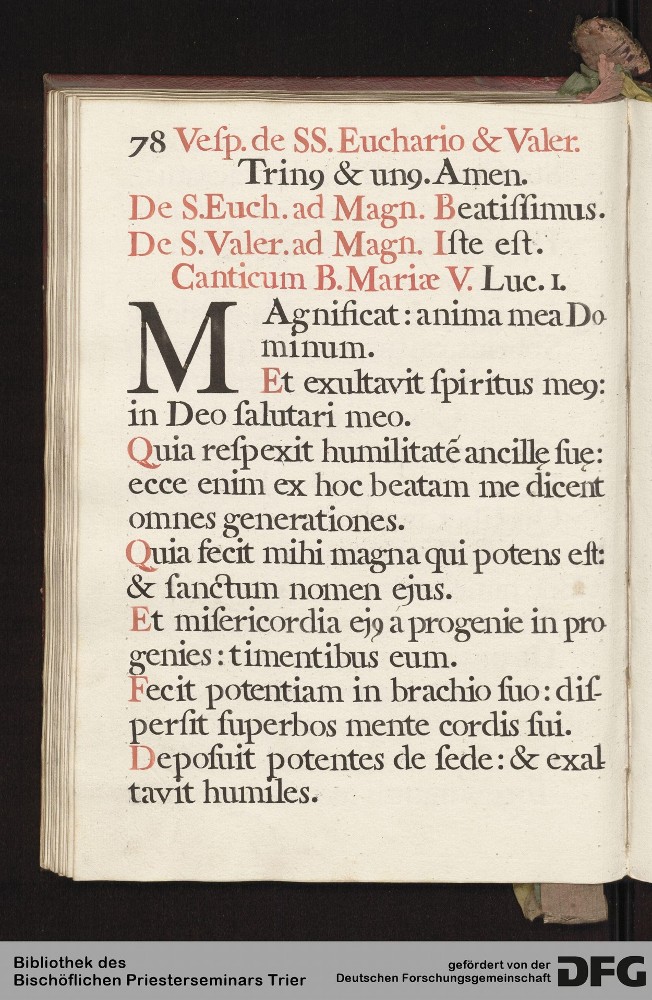 78 Veſp. de SS. Euchario & Valer.
Trinꝯ & unꝯ. Amen.
De S. Euch. ad Magn. Beatiſſimus.
De S. Valer. ad Magn. Iſte eſt.
Canticum B. Mariæ V. Luc. 1.
MAgnificat: anima mea Do
minum.
Et exultavit ſpiritus meꝯ:
in Deo ſalutari meo.
Quia reſpexit humilitatẽ ancillę ſuę:
ecce enim ex hoc beatam me dicent
omnes generationes.
Quia fecit mihi magna qui potens eſt:
& ſanctum nomen ejus.
Et miſericordia ejꝯ á progenie in pro
genies: timentibus eum.
Fecit potentiam in brachio ſuo: diſ-
perſit ſuperbos mente cordis ſui.
Depoſuit potentes de ſede: & exal
tavit humiles.
Bibliothek des
Bischöflichen Priesterseminars Trier
gefördert von der
Deutschen Forschungsgemeinschaft
DFG